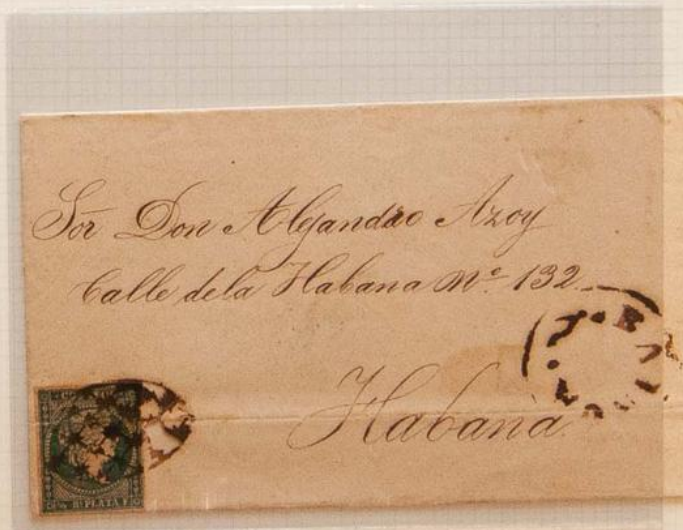 Sor Don Alejandro Azoy
Calle dela Habana No. 132
Habana
Rl PLATA F